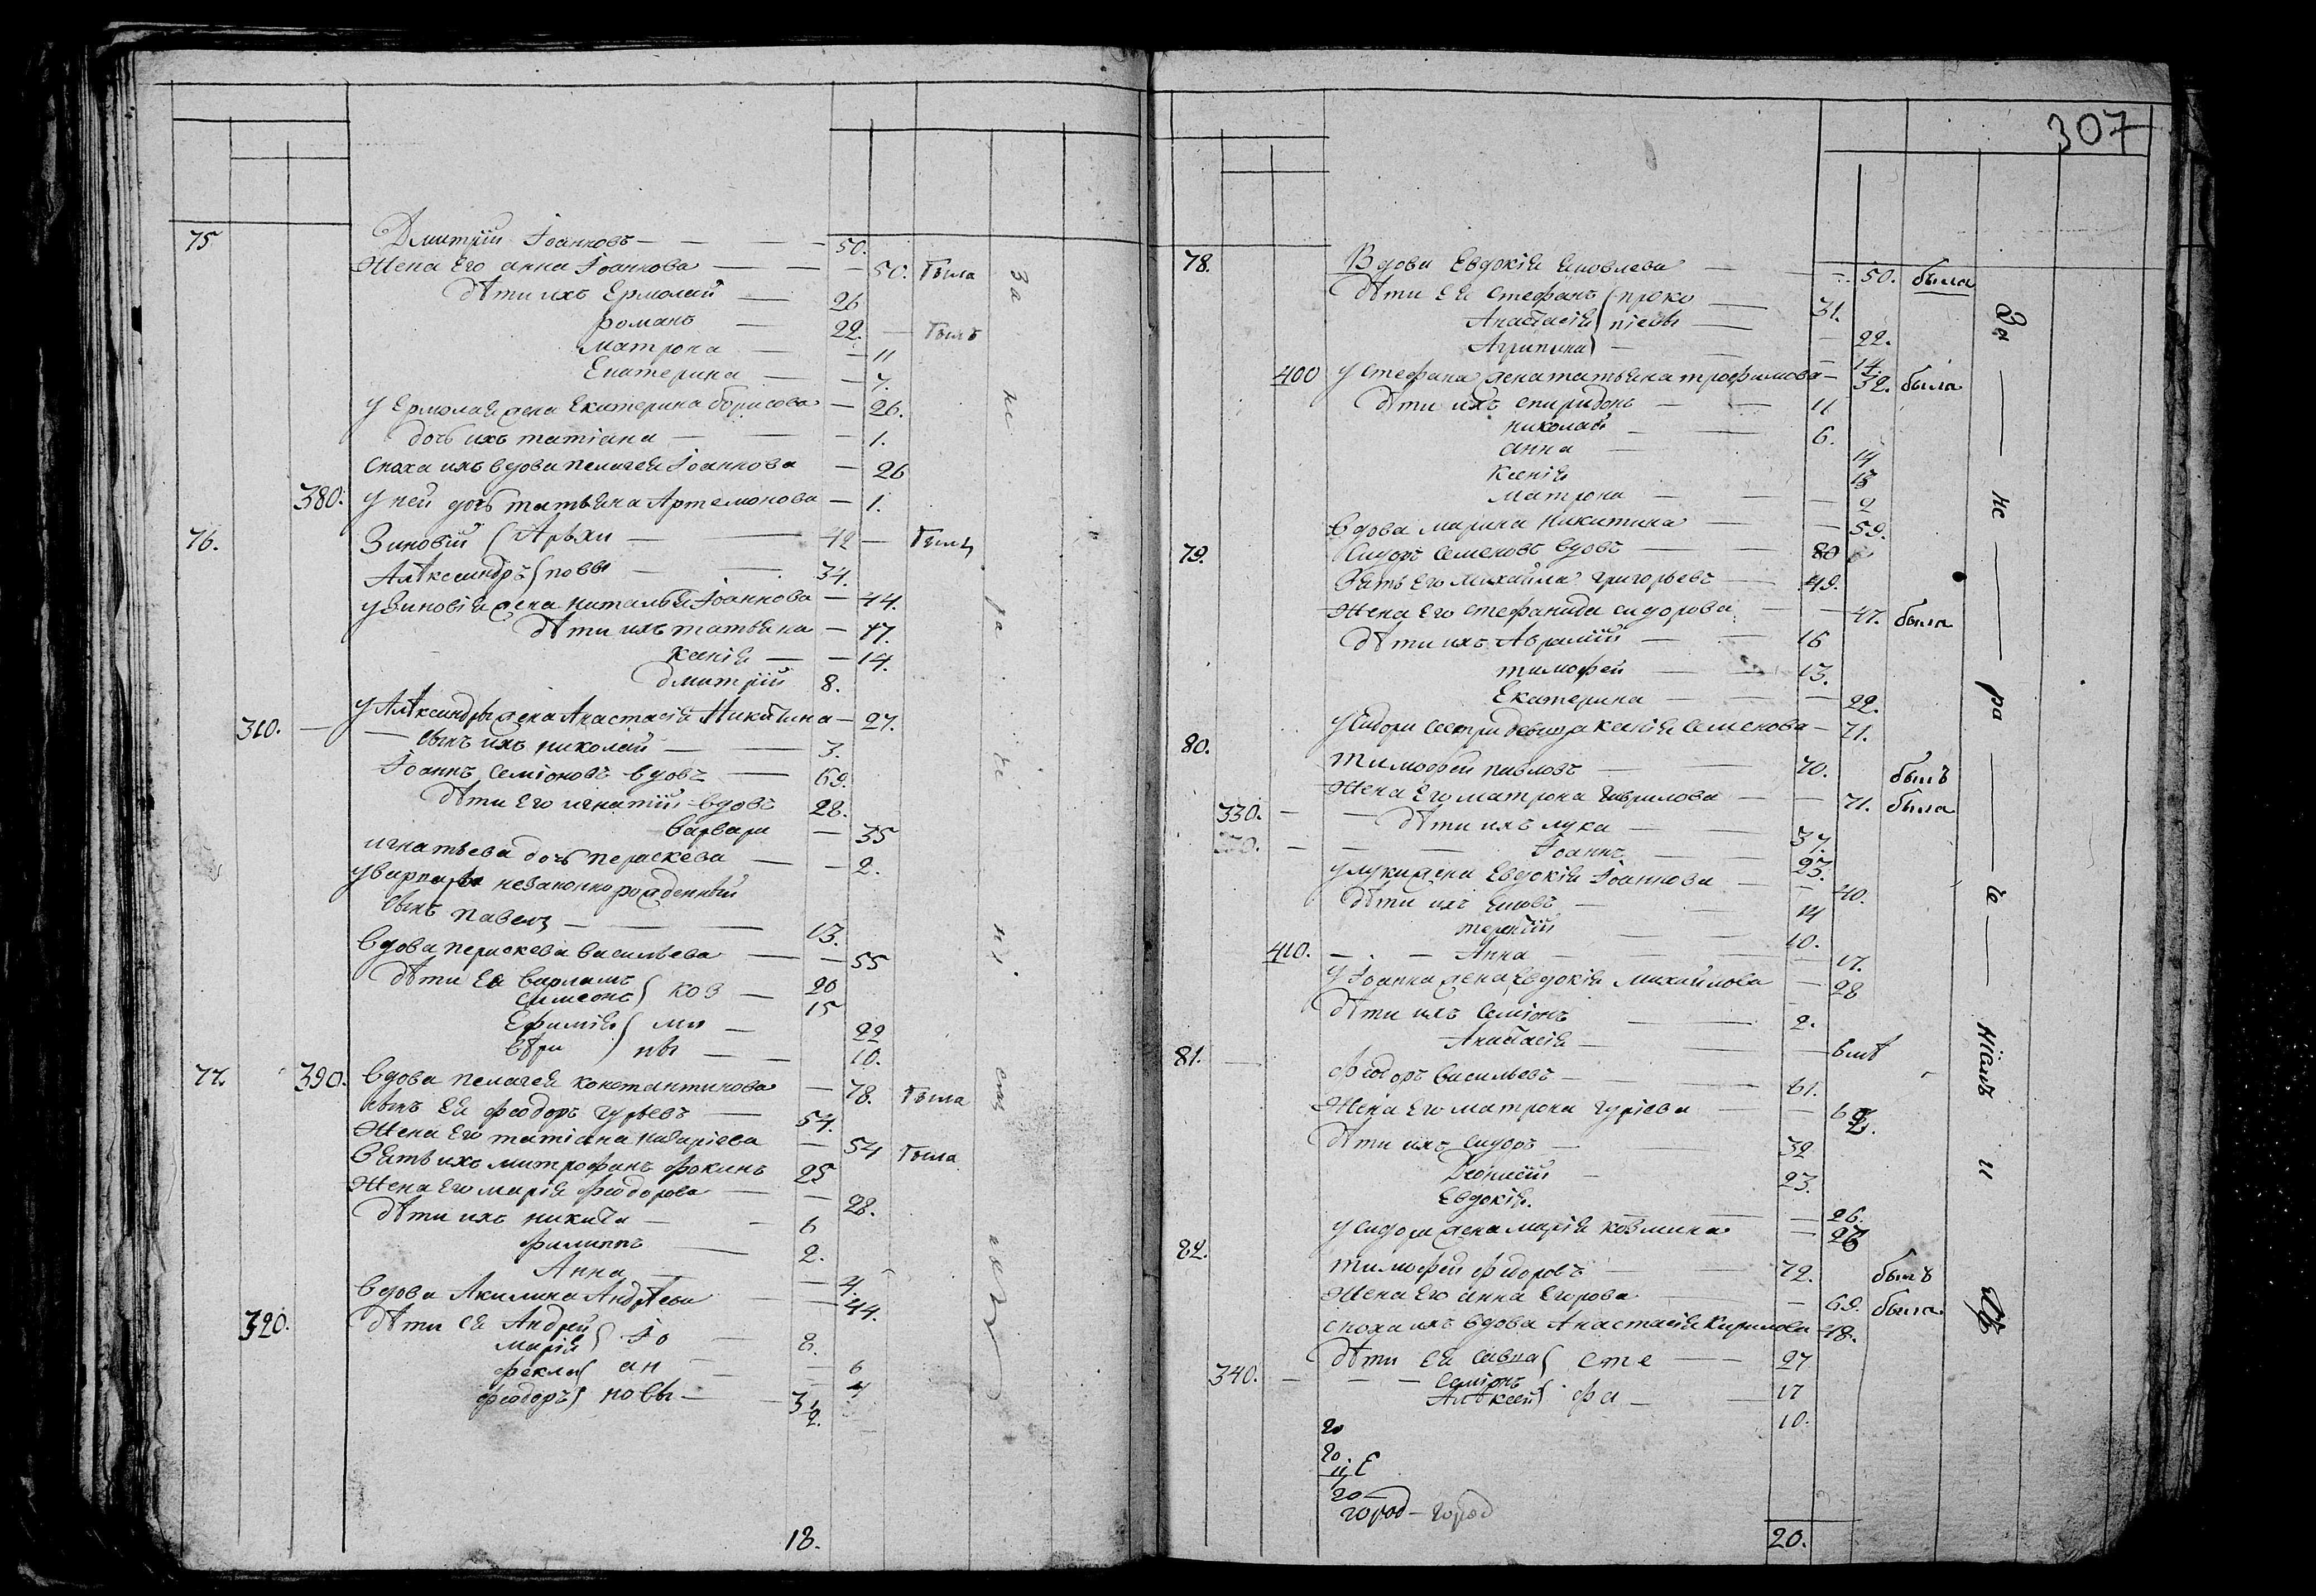 75 Дмитрій Іоанновъ — — — 50.
Жена Его анна Іоаннова — — — 50. была
дѣти ихъ Ермолай — 26
романъ — 22. — былъ
матрона — — 11
Екатерина — — 7.
у Ермолая жена Екатерина борисова — 26.
дочь ихъ татіана — — — 1.
сноха ихъ вдова пелагея Іоаннова — 26
380. у ней дочь татьяна Артемонова — 1.
76. Зиновій — 42 —
Алѣксандръ — 34.
у Зиновія жена наталья Іоаннова — 44.
дѣти ихъ татьяна — 17.
ксенія — — 14.
дмитрій 8.
310. — у Алѣксандра жена Анастасія Никитина — 27.
— сынъ ихъ николай — — 3.
Іоаннъ семіоновъ вдовъ — 69.
дѣти Его игнатій вдовъ 28.
варвара — 35
игнатьева дочь пераскева — — 2.
у варвары незаконно рожденный
сынъ павелъ — — — 13.
вдова пераскева васильева — — 55
дѣти Ея варламъ 20
симеонъ } коз — 15
Ефимія } ми — 22
вѣра } ны — — 10.
77. 390. вдова пелагея константинова — 78. была
сынъ Ея феодоръ гурьевъ — 54.
Жена Его татіана назаріева — 54 была
Зять ихъ митрофанъ фокинъ 25
Жена Его марія феодорова — — 28.
дѣти ихъ никита — — 6
филиппъ — 2.
Анна — — 4.
вдова Акилина Андрѣева — — 44.
320. дѣти Ея Андрей 8.
марія } Іо — — 6
фекла } ан — — 4
феодоръ } новы —
18.
за не ра че ні
307
78. Вдова Евдокія яковлева — — 50. была
дѣти Ея стефанъ } проко — 31.
Анастасія } піевы — — 22.
Агрипина } — — 14.
400 у стефана жена татьяна трофимова — 32. была
дѣти ихъ спиридонъ — — 11
николай — — 6.
анна — 14
ксенія 13
матрона — — — 2
вдова марина никитина — — 59.
79. Сидоръ семеновъ вдовъ — — 80
Зять Его михайла григорьевъ — 49.
Жена Его стефанида сидорова — — 47. была
дѣти ихъ Аврамій — — 16
тимофей — — 13.
Екатерина — — — 22.
у сидора сестра девица ксенія семенова — 71.
80. тимофей павловъ — — 70. былъ
Жена Его матрона гаврилова — — 71. была
330. — — дѣти ихъ лука — — 37.
— — — Іоаннъ — — 23.
у луки жена Евдокія Іоаннова — — 40.
дѣти ихъ яковъ — — 14
терентій — — 10.
410. — — Анна — — — 17.
у Іоанна жена Евдокія михайлова — 28
дѣти ихъ семіонъ — — 2.
Анастасія — — —
81. — феодоръ васильевъ — — 61.
Жена Его матрона гуріева — —
дѣти ихъ сидоръ — — 32
Діонисій — 23.
Евдокія. — — 26.
у сидора жена марія козмина —
82. тимофей феодоровъ — — 72. былъ
Жена Его анна Егорова — — 69. была.
сноха ихъ вдова Анастасія кирилова 48.
дѣти Ея савва } сте — 27
340. — — — семіонъ — 17
Алѣксей } фа — 10.
го
го
го
город — город
20.
За — не — ра — че — ніемъ и